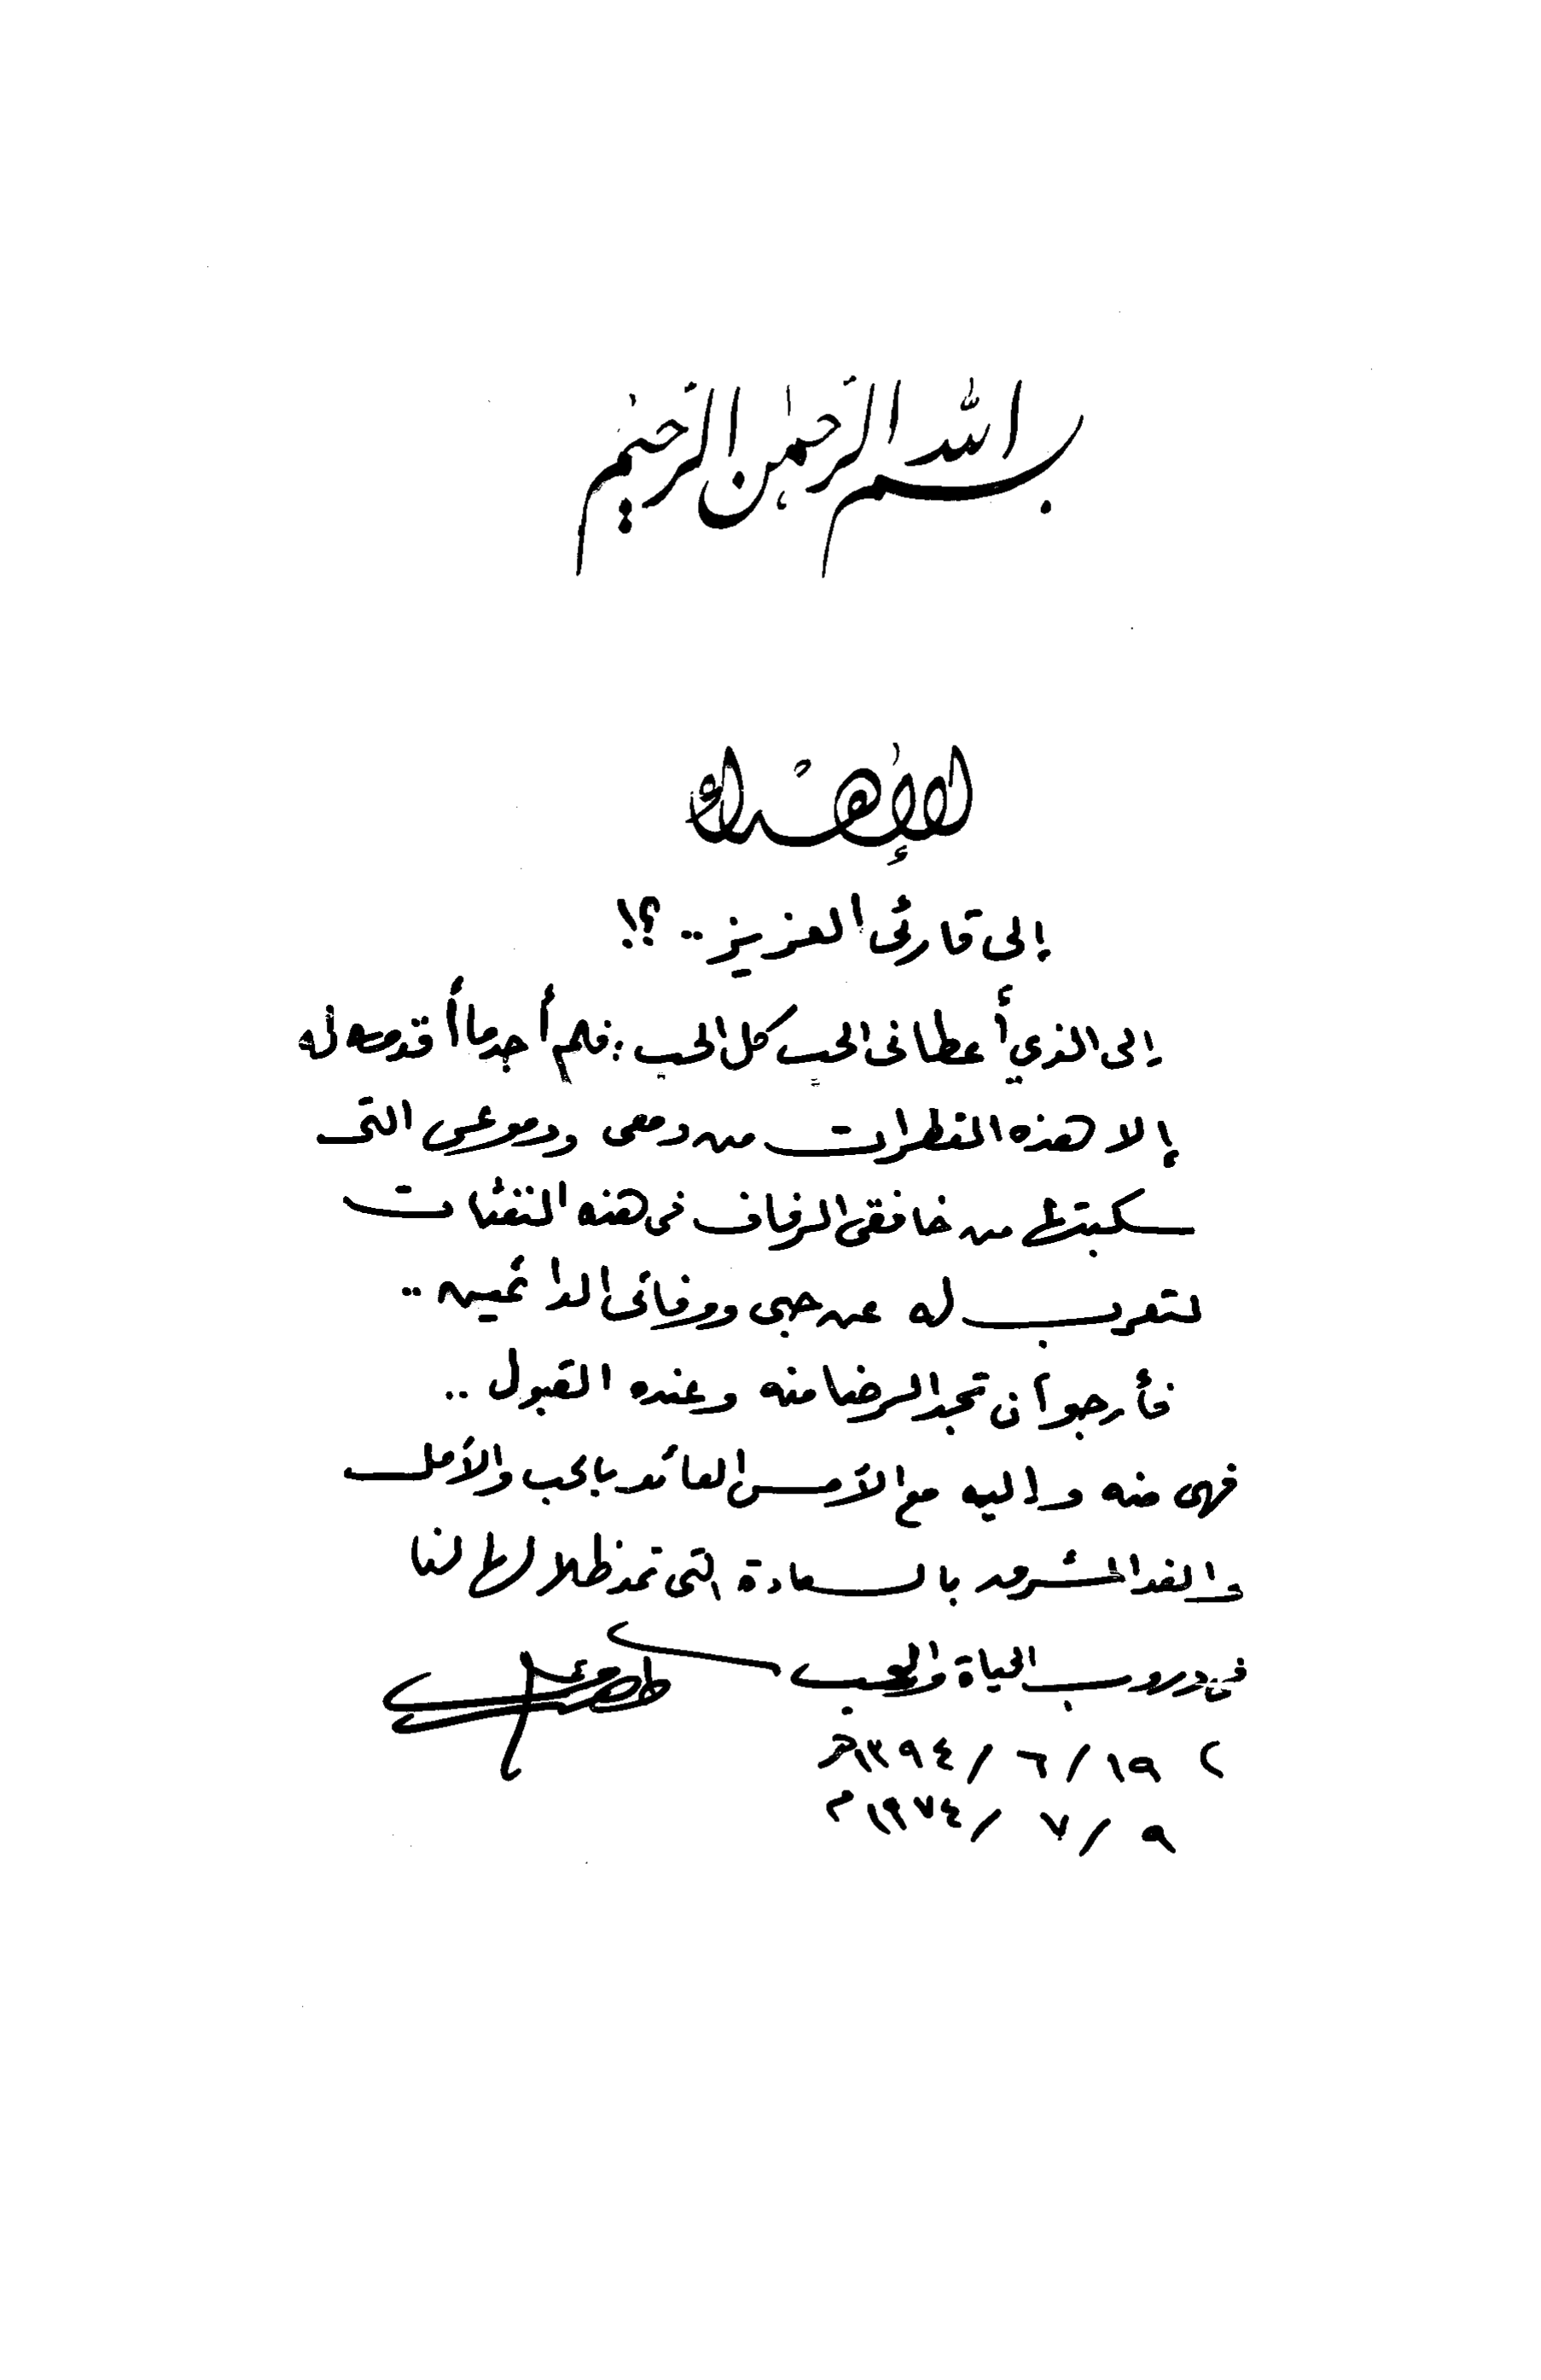 بسم الله الرحمن الرحيم
الإهداء
إلى قارئى العزيز .. ؟!
إلى الذي أعطانى الحب كل الحب : فلم أجد ما أقدمه له
إلا هذه القطرات من دمعى ودموعى التى
سكبتها من خافقى الرفاف فى هذه النفثات
لتعرب له عن حبى ووفائى الدائمين ..
فأرجو أن تجد الرضا منه وعنده القبول ..
فهى منه وإليه مع الأمس العائد بالحب والأمل
والغد المشرق بالسعادة التى تمد ظلالها لنا
فى دروب الحياة والحب
١٩ / ٦ / ١٣٩٤هـ
٩ / ٧ / ١٩٧٤م